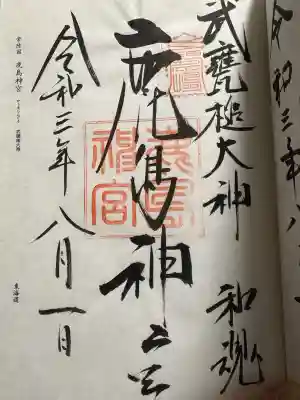 武甕槌大神 和魂
鹿島神宮
鹿島神宮
令和三年 八月一日
常陸国 鹿島神宮
東海道
令和三年八